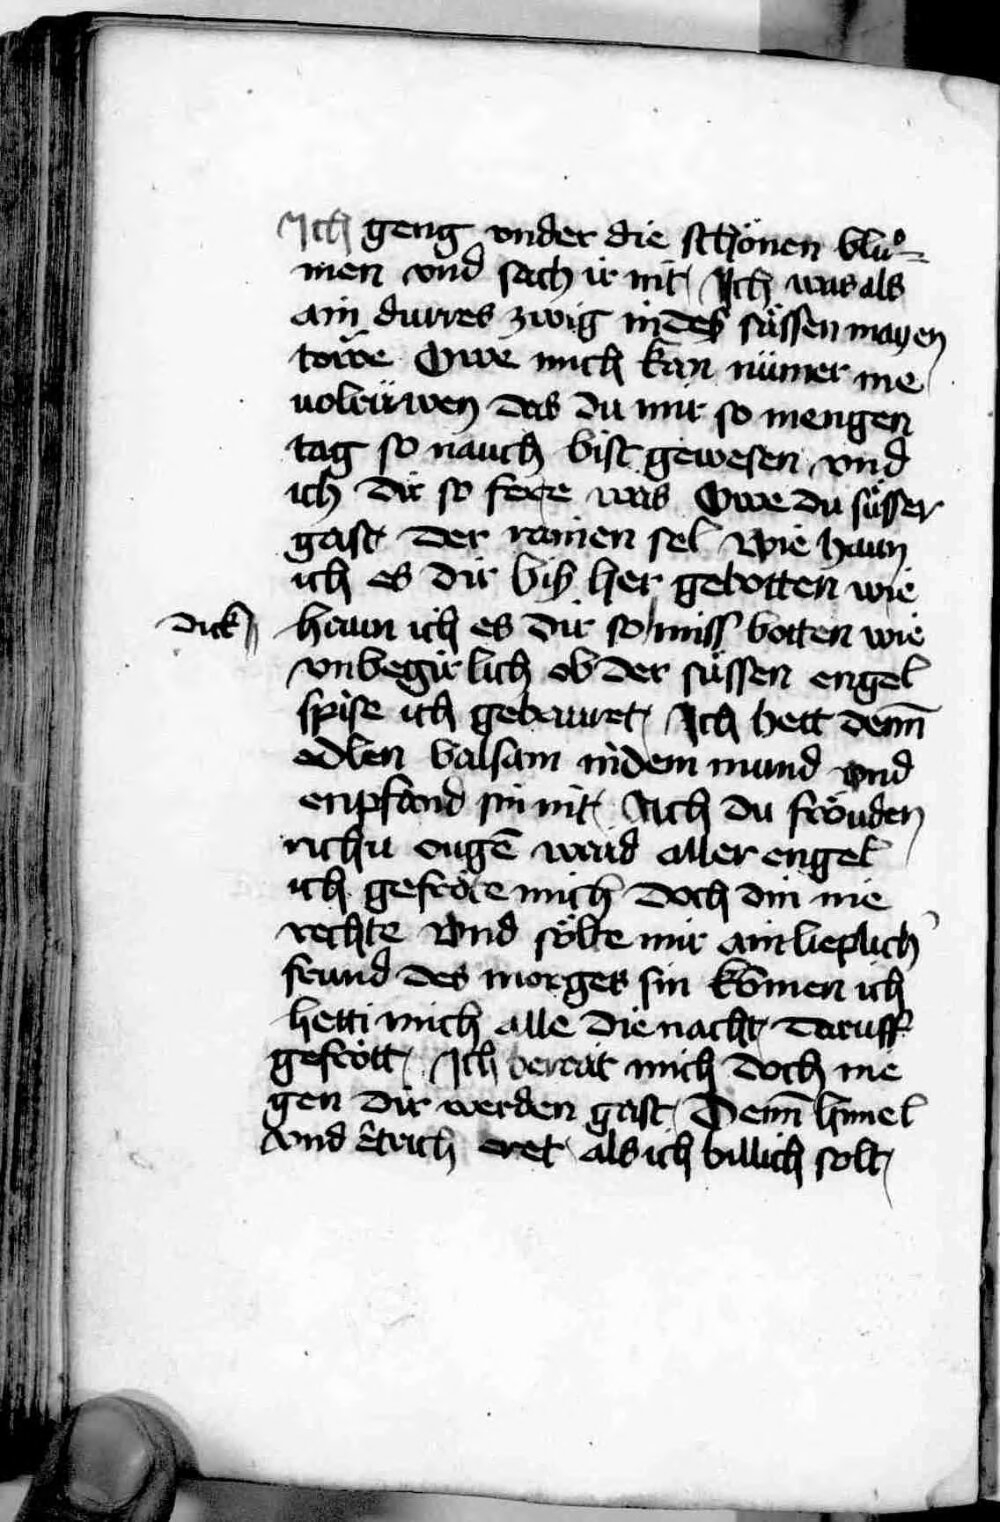 Ich geng vnder die schönen blů⸗
men vnd sach ir nit / Ich was als
ain durres zwig in des süssen mayen
towe Owe mich kan nümer me
volrüwen das du mir so mengen
tag so nauch bist gewesen vnd
ich dir so ferre was Owe du süsser
gast der rainen sel wie haun
ich es dir biß her gebotten wie
dick haun ich es dir so miss botten wie
vnbegirlich ob der süssen engel
spise ich gebauret / Ich hett denn̄
edlen balsam in dem mund vnd
enpfand sin nit / Ach du fröuden
richú ougē waid aller engel
ich gefröte mich doch din nie
rechte Vnd sölte mir ain lieplich
frund des morges sin komen ich
hetti mich alle die nacht daruff
gefrött / Ich berait mich doch nie
gen dir werden gast / Denn̄ himel
vnd ertrich eret als ich billich solt /